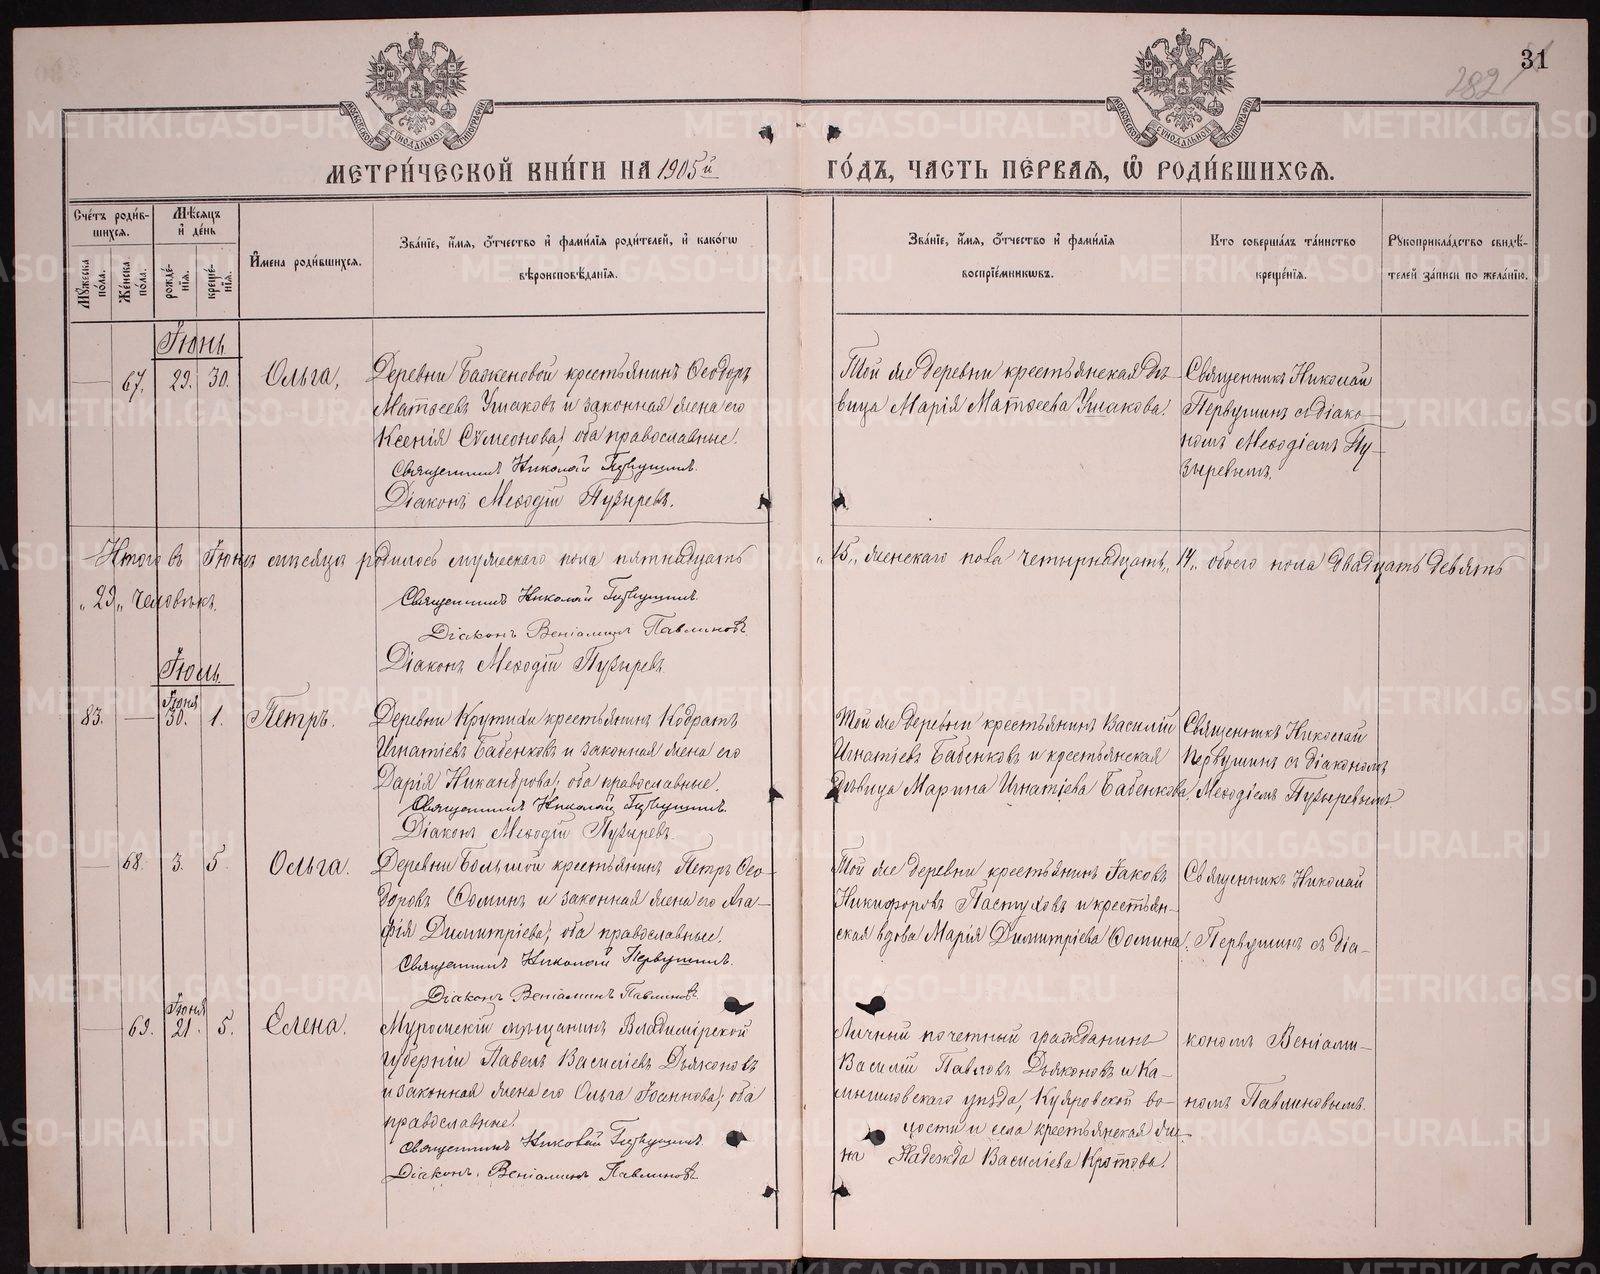 31
282
МЕТРИ́ЧЕСКОЙ КНИ́ГИ НА 1905й ГО́ДЪ, ЧАСТЬ ПЕ́РВАѦ, Ѡ҆ РОДИ́ВШИХСѦ.
Сче́тъ роди́в-
шихсѧ.
Мѣ́сѧцъ
и҆ де́нь
Мꙋ́жеска
по́ла.
Же́нска
по́ла.
рожде́-
нїѧ.
креще́-
нїѧ.
И҆мена роди́вшихсѧ.
Зва́нїе, и҆́мѧ, о҆́тчество и҆ фами́лїѧ роди́телей, и҆ како́гѡ
вѣроисповѣ́данїѧ.
Зва́нїе, и҆́мѧ, о҆́тчество и҆ фами́лїѧ
воспрїе́мникѡвъ.
Кто соверша́лъ та́инство
креще́нїѧ.
Рꙋкоприкла́дство свидѣ́-
телей за́писи по жела́нїю.
Іюнь
67. 29. 30. Ольга,
Деревни Баженовой крестьянинъ Ѳеодоръ
Матѳеевъ Ушаковъ и законная жена его
Ксенія Сѵмеонова, оба православные.
Священникъ Николай Первушинъ.
Діаконъ Меѳодій Пузыревъ.
Той же деревни крестьянская дѣ-
вица Марія Матѳеева Ушакова.
Священникъ Николай
Первушинъ съ діако-
номъ Меѳодіемъ Пу-
зыревымъ.
Итого въ Іюнѣ мѣсяцѣ родилось мужескаго пола пятнадцать „15„ женскаго пола четырнадцать „14„ обоего пола двадцать девять
„29„ человѣкъ.
Священникъ Николай Первушинъ.
Діаконъ Веніаминъ Павлиновъ
Діаконъ Меѳодій Пузыревъ
Іюль.
83. Іюня 30. 1. Петръ.
Деревни Крутихи крестьянинъ Кодратъ
Игнатіевъ Бабенковъ и законная жена его
Дарія Никандрова; оба православные.
Священникъ Николай Первушинъ.
Діаконъ Меѳодій Пузыревъ.
Той же деревни крестьянинъ Василій
Игнатіевъ Бабенковъ и крестьянская
дѣвица Марина Игнатіева Бабенкова.
Священникъ Николай
Первушинъ съ діакономъ
Меѳодіемъ Пузыревымъ
68. 3. 5. Ольга.
Деревни Большой крестьянинъ Петръ Ѳео-
доровъ Ѳоминъ и законная жена его Ага-
фія Димитріева; оба православные.
Священникъ Николай Первушинъ.
Діаконъ Веніаминъ Павлиновъ.
Той же деревни крестьянинъ Іаковъ
Никифоровъ Пастуховъ и крестьян-
ская вдова Марія Димитріева Ѳомина.
Священникъ Николай
Первушинъ съ діа-
кономъ Веніами-
номъ Павлиновымъ.
69. Іюня 21. 5. Елена.
Муромскій мѣщанинъ Владимірской
губерніи Павелъ Василіевъ Дьяконовъ
и законная жена его Ольга Іоаннова; оба
православные.
Священникъ Николай Первушинъ.
Діаконъ Веніаминъ Павлиновъ.
Личный почетный гражданинъ
Василій Павловъ Дьяконовъ и Ка-
мышловскаго уѣзда, Куяровской во-
лости и села крестьянская же-
на Надежда Василіева Кротова.